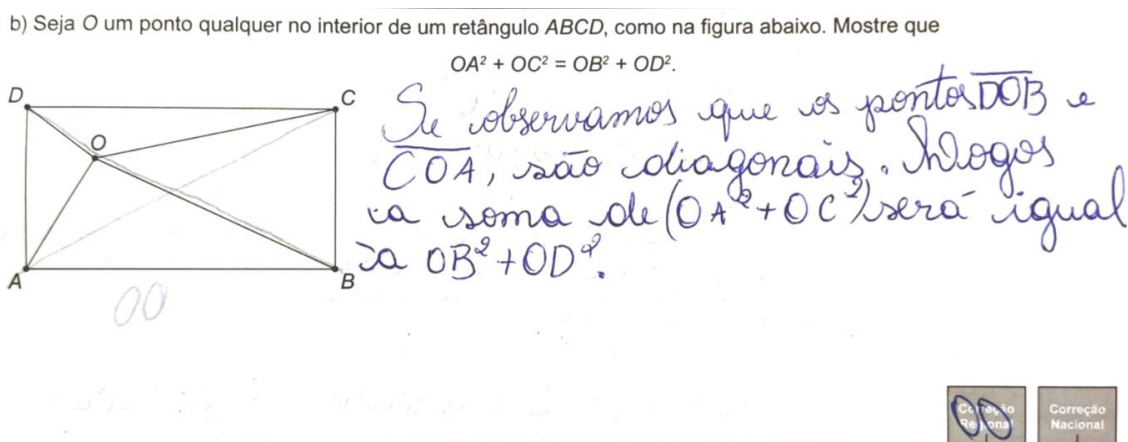 b) Seja O um ponto qualquer no interior de um retângulo ABCD, como na figura abaixo. Mostre que
OA² + OC² = OB² + OD².
D
C
O
A
B
Se observamos que os pontos DOB e
COA, são diagonais. Logos
a soma de (OA² + OC²) será igual
a OB² + OD².
00
Correção
Regional
00
Correção
Nacional